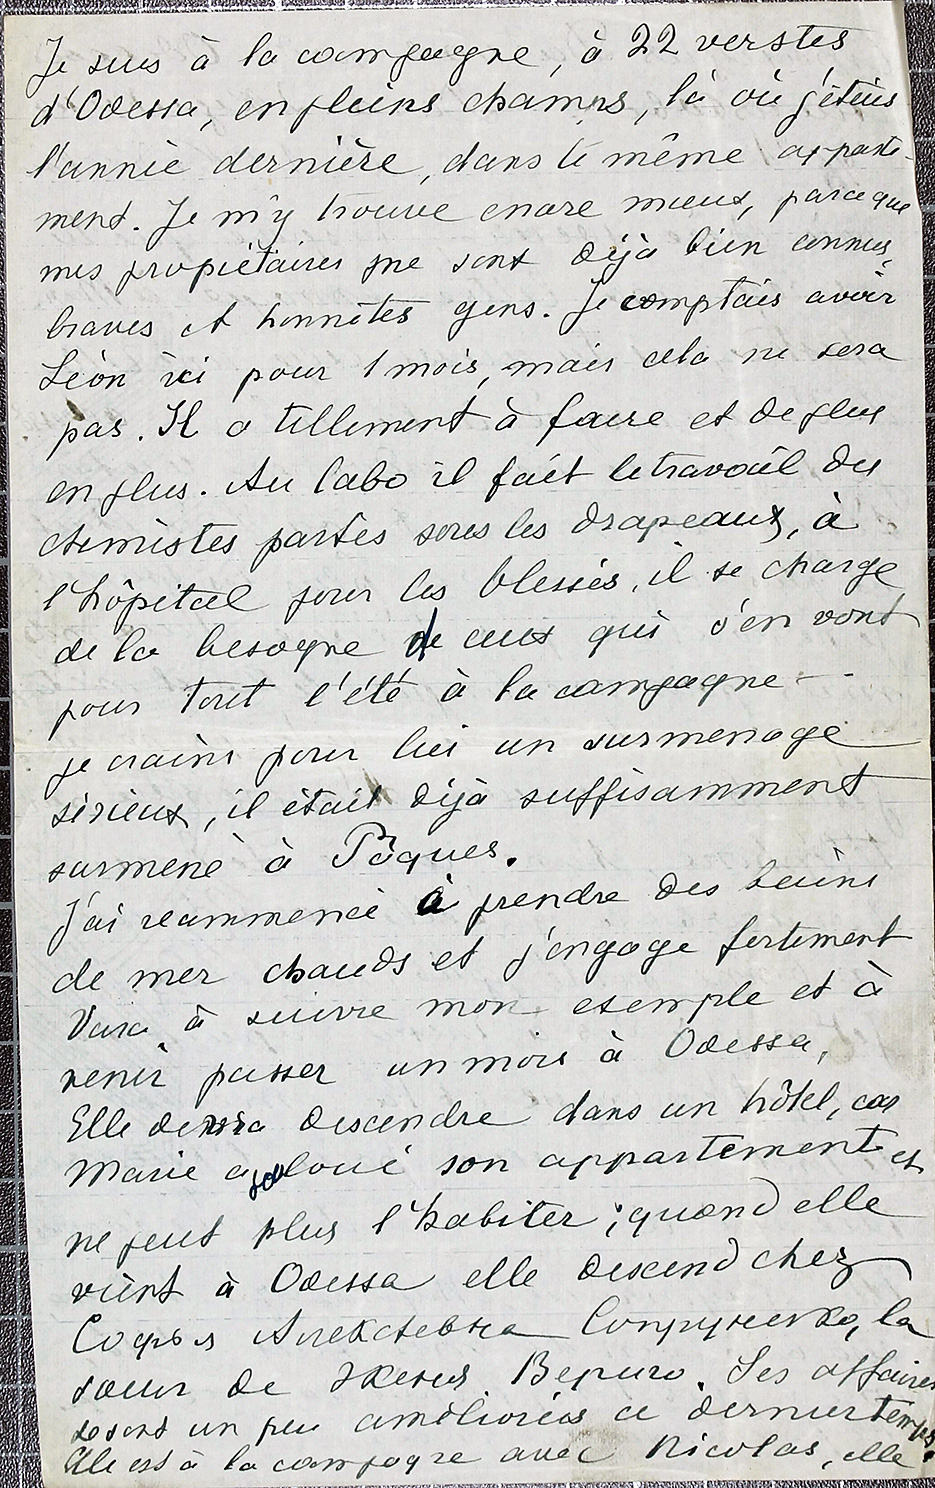 Je suis à la campagne, à 22 verstes
d'Odessa, en pleins champs, là où j'étais
l'année dernière, dans le même apparte-
ment. Je m'y trouve encore mieux, parce que
mes propiétaires me sont déjà bien connus,
braves et honnêtes gens. Je comptais avoir
Léon ici pour 1 mois, mais cela ne sera
pas. Il a tellement à faire et de plus
en plus. Au labo il fait le travail des
chimistes partis sous les drapeaux, à
l'hôpital pour les blessés, il se charge
de la besogne de ceux qui s'en vont
pour tout l'été à la campagne -
je crains pour lui un surmenage
sérieux, il était déjà suffisamment
surmené à Pâques.
J'ai recommencé à prendre des bains
de mer chauds et j'engage fortement
à suivre mon exemple et à
venir passer un mois à Odessa,
Elle devra descendre dans un hôtel, car
Marie a sous loué son appartement et
ne peut plus l'habiter ; quand elle
vient à Odessa elle descend chez
Софья la
sœur de Ses affaires
se sont un peu améliorées ce dernier temps.
Elle est à la campagne avec Nicolas, elle